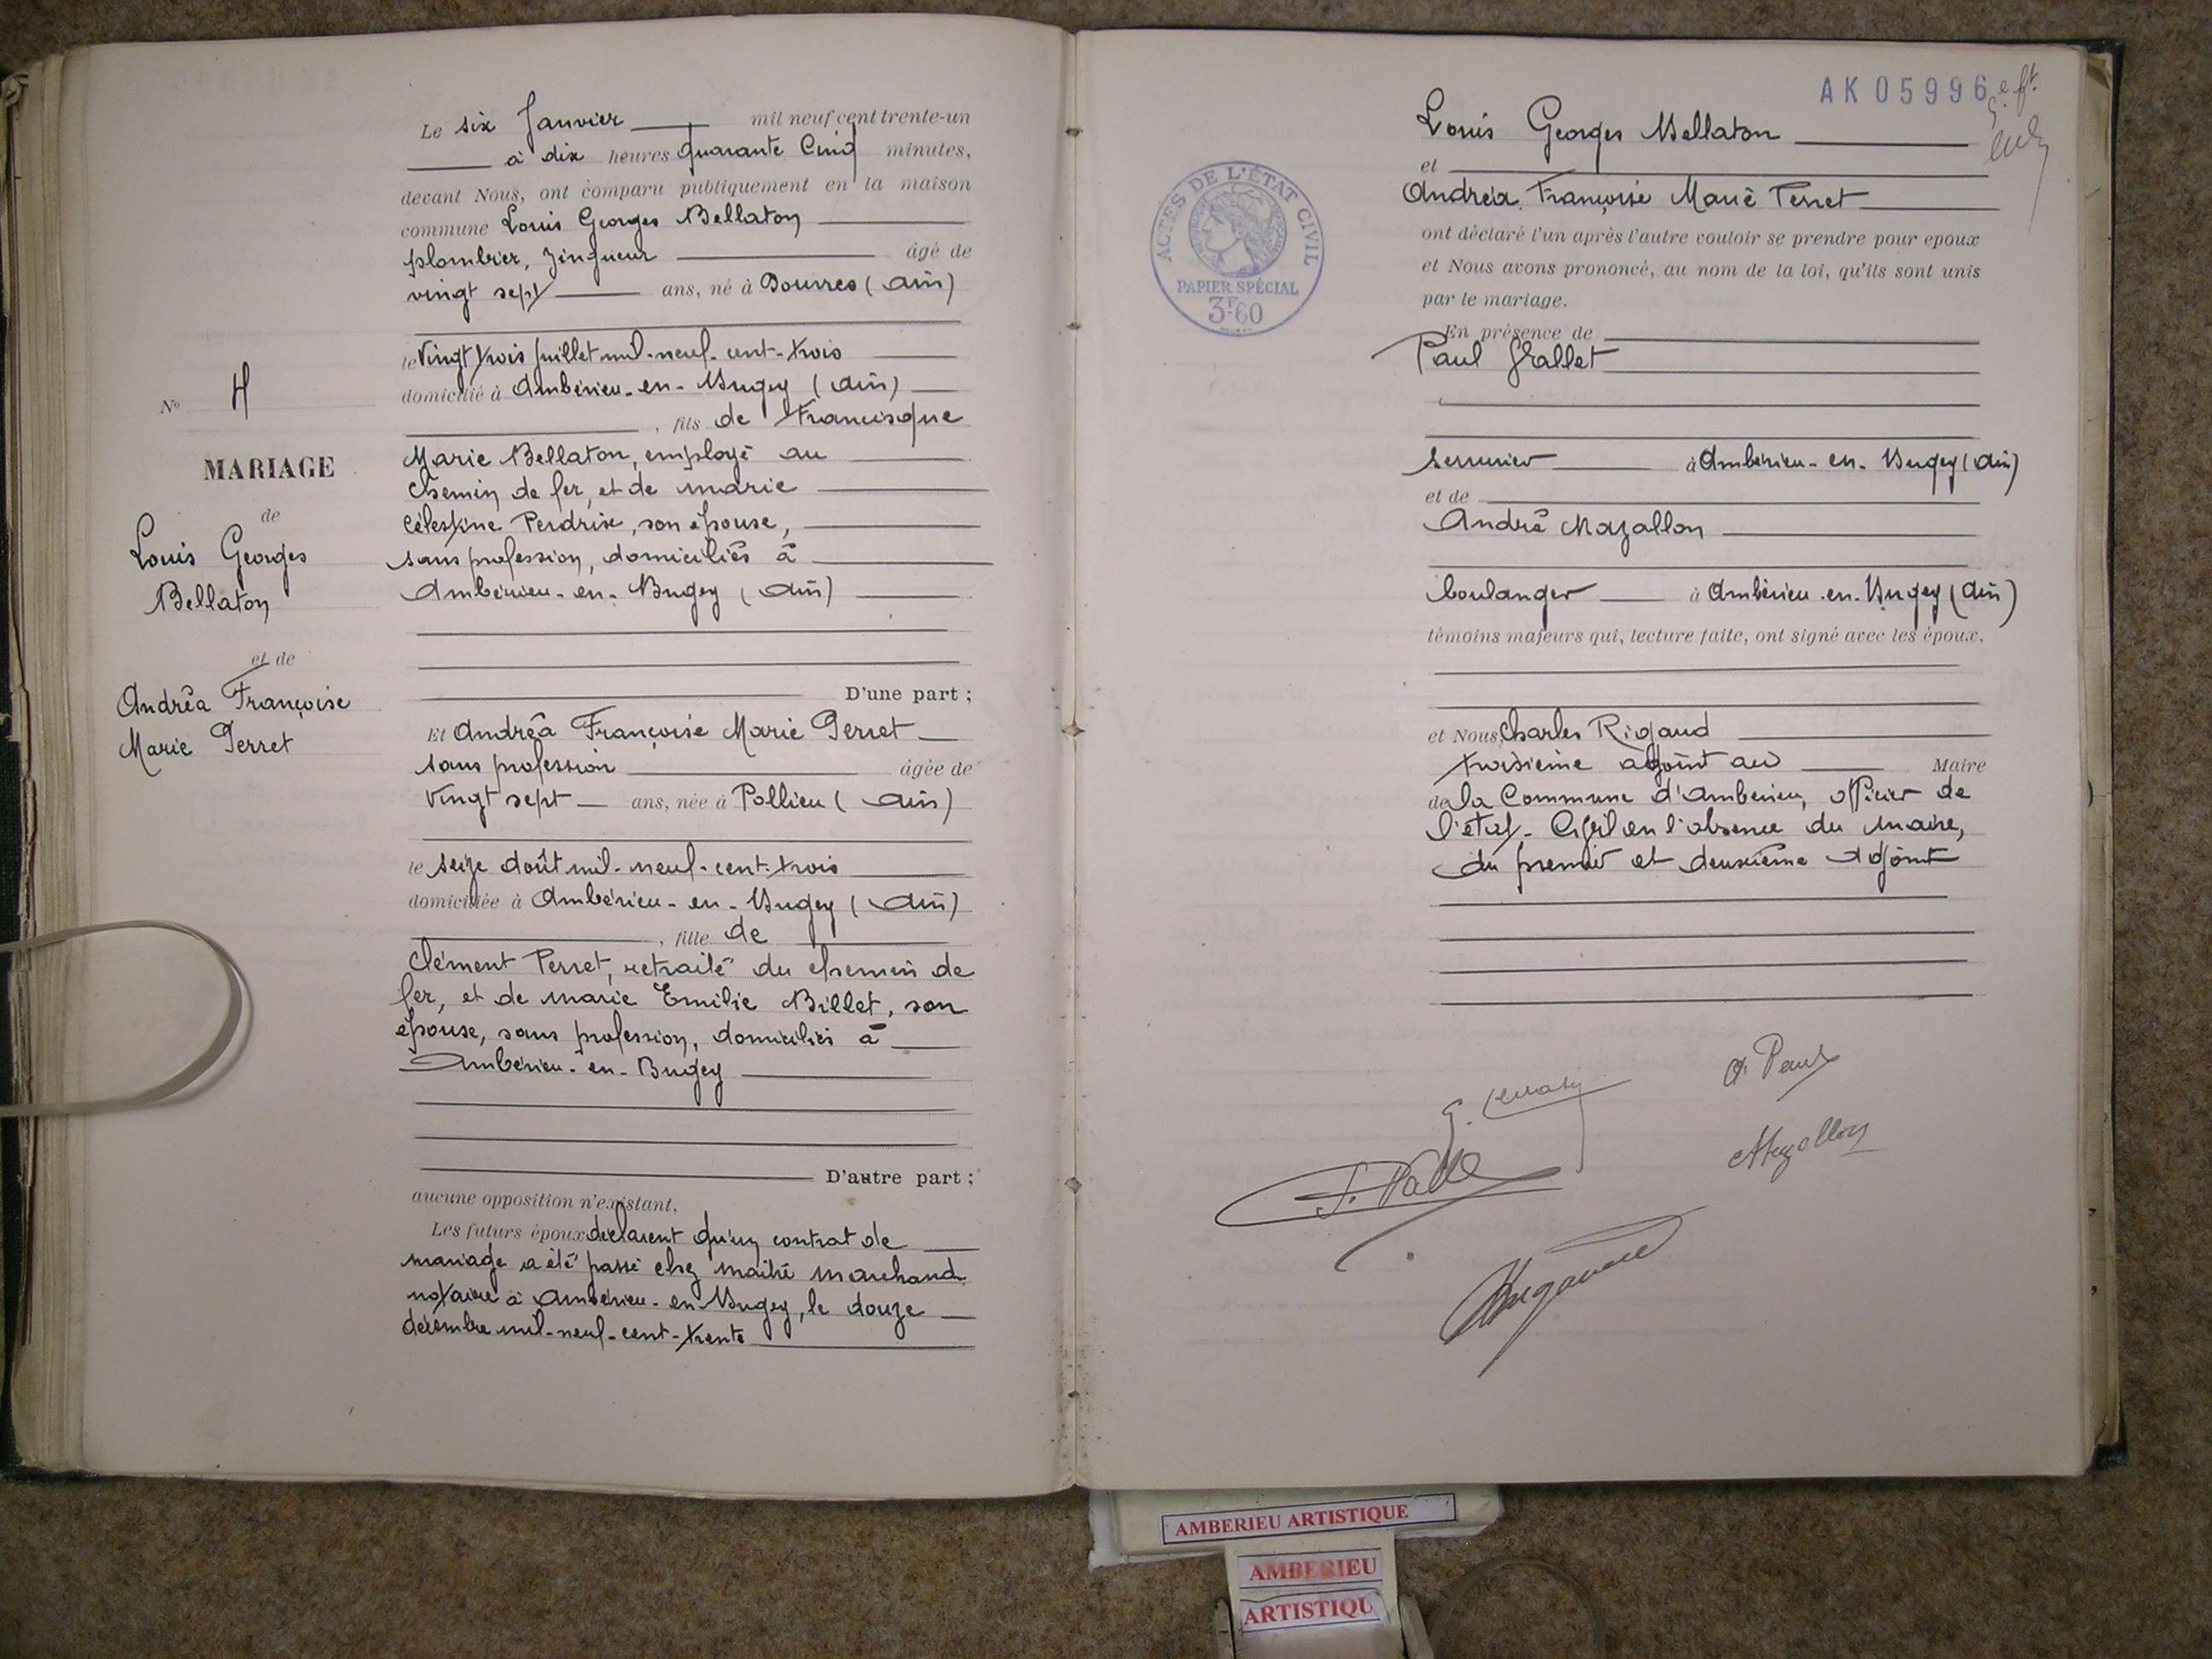 Le six Janvier mil neuf cent trente-un
à dix heures quarante Cinq minutes,
devant Nous, ont comparu publiquement en la maison
commune Louis Georges Bellaton
plombier, zingueur âgé de
vingt sept ans, né à Douvres (Ain)
le Vingt trois Juillet mil-neuf-cent-trois
domicilié à Ambérieu-en-Bugey (Ain)
, fils de Francisque
Marie Bellaton, employé au
Chemin de fer, et de Marie
Célestine Perdrix, son épouse,
sans profession, domiciliés à
Ambérieu-en-Bugey (Ain)
D'une part ;
Et Andréa Françoise Marie Perret
sans profession âgée de
Vingt sept ans, née à Pollieu (Ain)
le seize Août mil-neuf-cent-trois
domiciliée à Ambérieu-en-Bugey (Ain)
, fille de
Clément Perret, retraité du chemin de
fer, et de Marie Emilie Billet, son
épouse, sans profession, domiciliés à
Ambérieu-en-Bugey
D'autre part ;
aucune opposition n'existant,
Les futurs époux déclarent qu'un contrat de
mariage a été passé chez maître Marchand
notaire à Ambérieu-en-Bugey, le douze
décembre mil-neuf-cent-trente
No 4
MARIAGE
de
Louis Georges
Bellaton
et de
Andréa Françoise
Marie Perret
AK05996
Louis Georges Bellaton
et
Andréa Françoise Marie Perret
ont déclaré l'un après l'autre vouloir se prendre pour epoux
et Nous avons prononcé, au nom de la loi, qu'ils sont unis
par le mariage.
En présence de
Paul Gallet
serrurier à Ambérieu-en-Bugey (Ain)
et de
André Mazallon
boulanger à Ambérieu-en-Bugey (Ain)
témoins majeurs qui, lecture faite, ont signé avec les époux,
et Nous Charles Rigaud
troisième adjoint au Maire
de la Commune d'Ambérieu, officier de
l'état-Civil en l'absence du Maire,
du premier et deuxième Adjoint
ACTES DE L'ÉTAT CIVIL
PAPIER SPÉCIAL
3F60
Mazallon
AMBERIEU ARTISTIQUE
AMBERIEU
ARTISTIQU